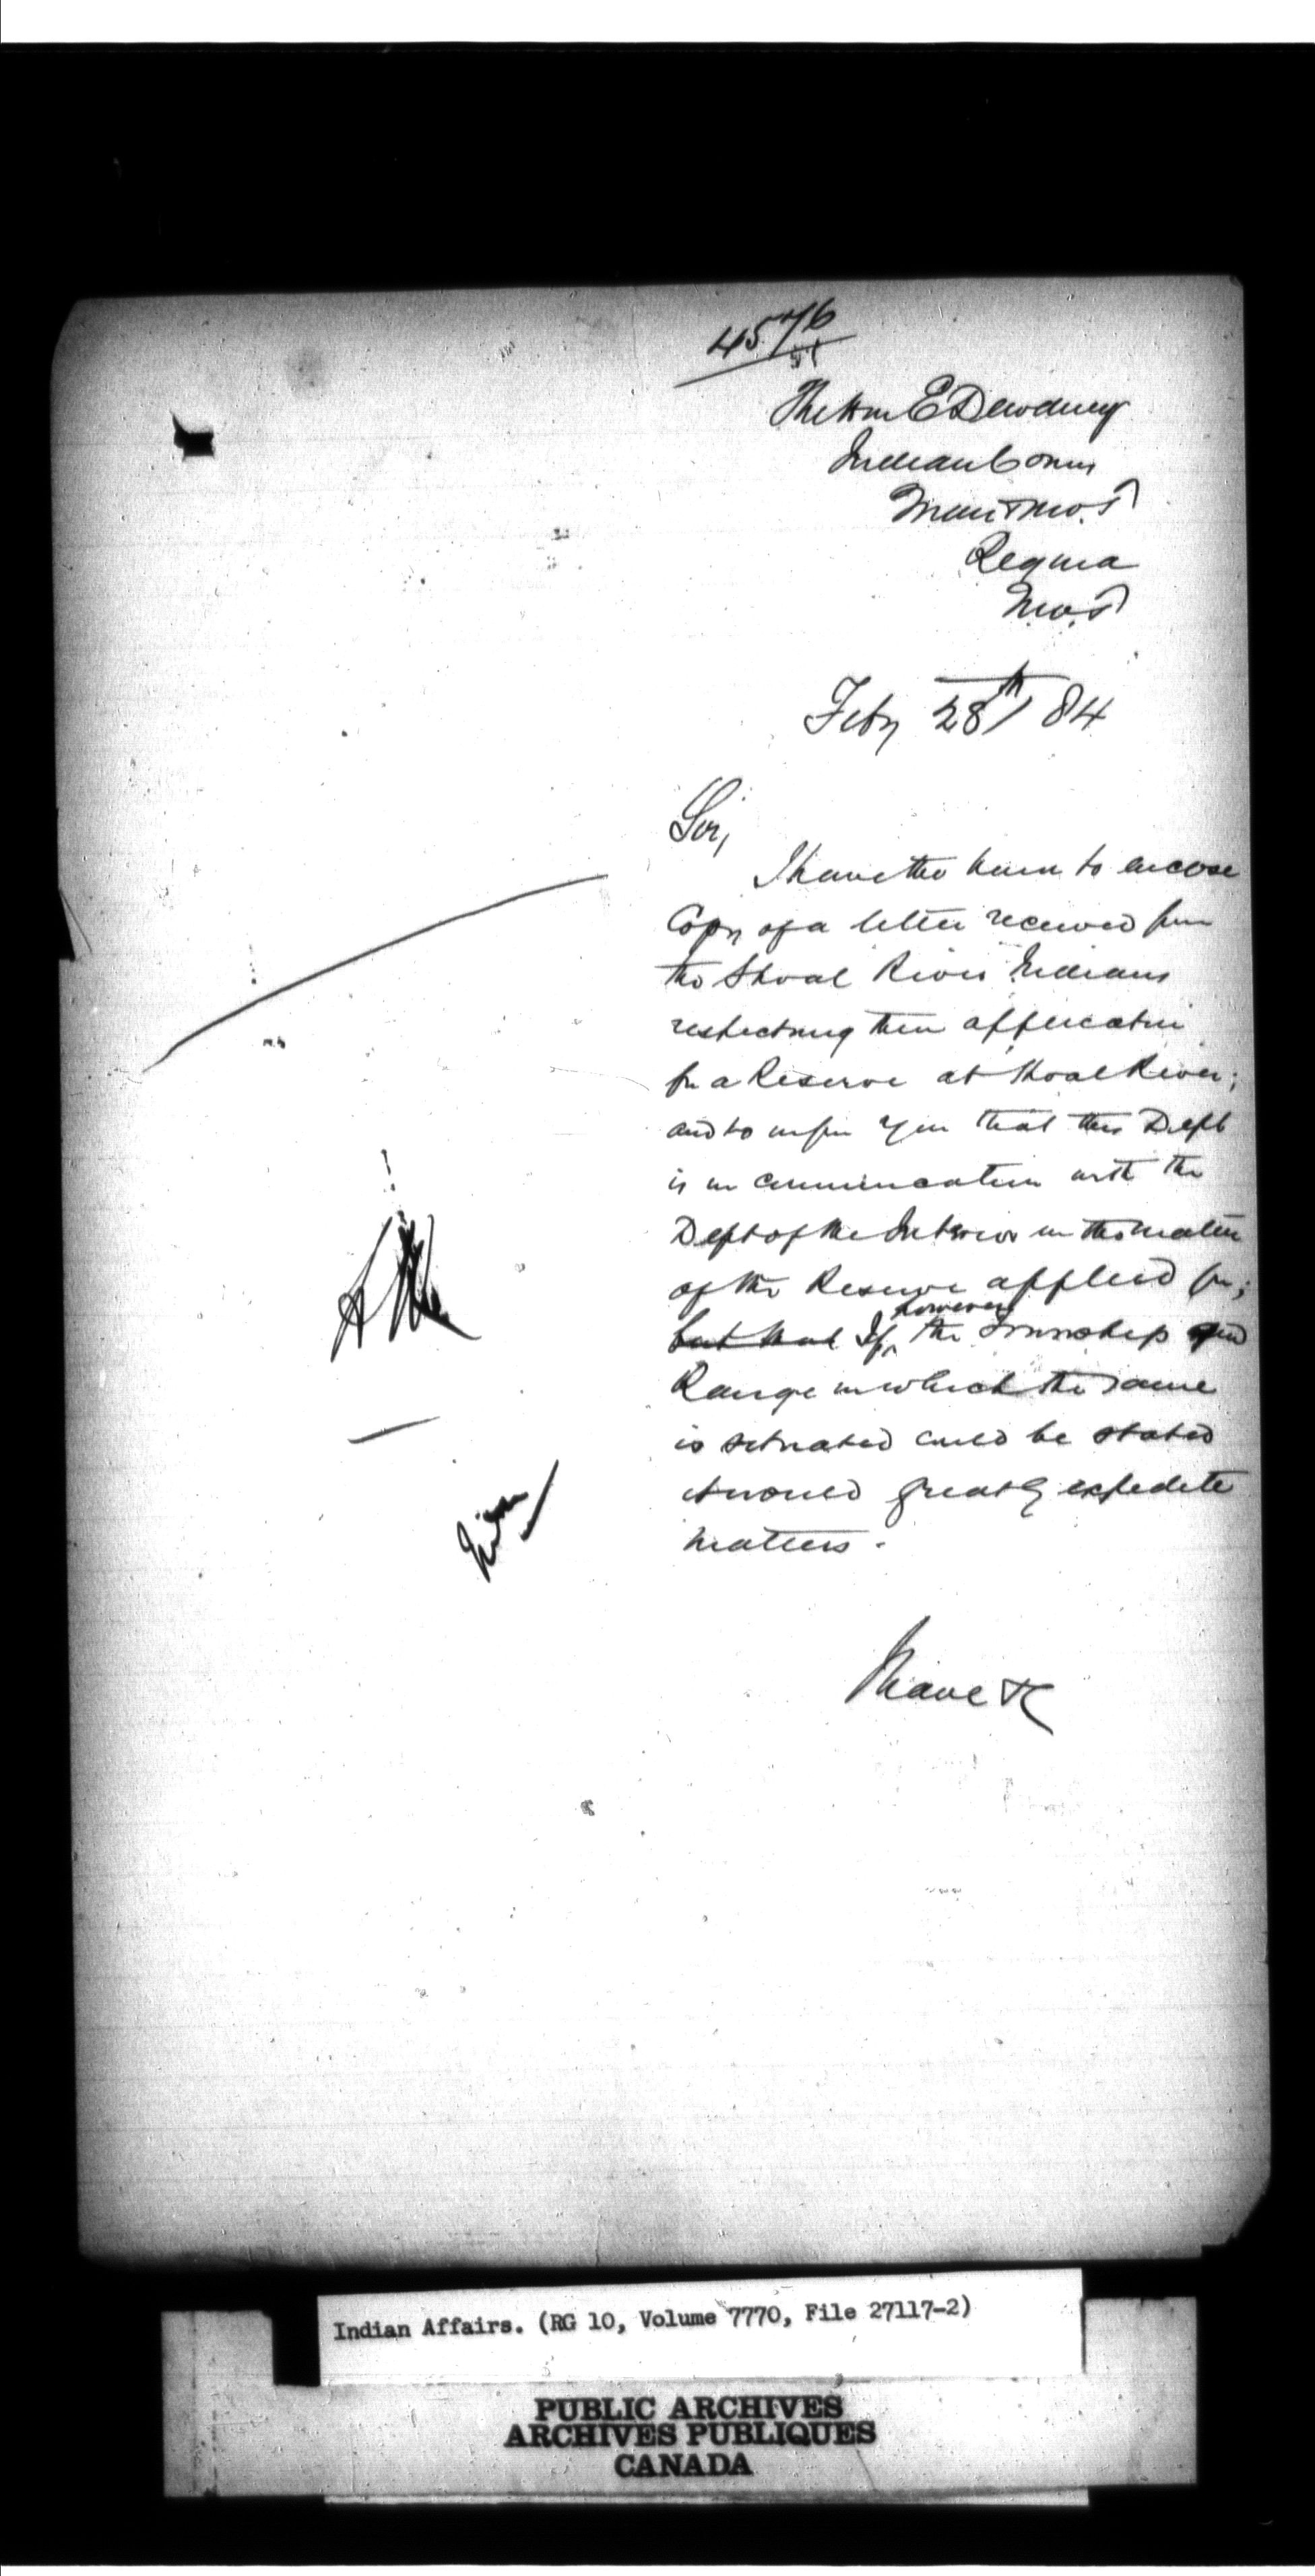 4576
The Hon E Dewdney
Indian Comr
Man & N.W.T
Regina
N.W.T
Feby 28th / 84
Sir,
I have the honor to enclose
Copy of a letter received from
the Shoal River Indians
respecting their application
for a Reserve at Shoal River;
and to inform you that this Dept
is in communication with the
Dept of the Interior in the matter
of the Reserve applied for;
but that If however the Township and
Range in which the same
is situated could be stated
it would greatly expedite
matters.
I have &c
Indian Affairs. (RG 10, Volume 7770, File 27117-2)
PUBLIC ARCHIVES
ARCHIVES PUBLIQUES
CANADA